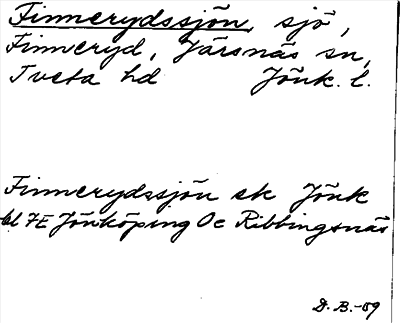 Finnerydssjön, sjö,
Finneryd, Järsnäs sn,
Tveta hd Jönk. l.
Finnerydssjön ek Jönk
bl 7E Jönköping Oe Ribbingsnäs
D. B. -59